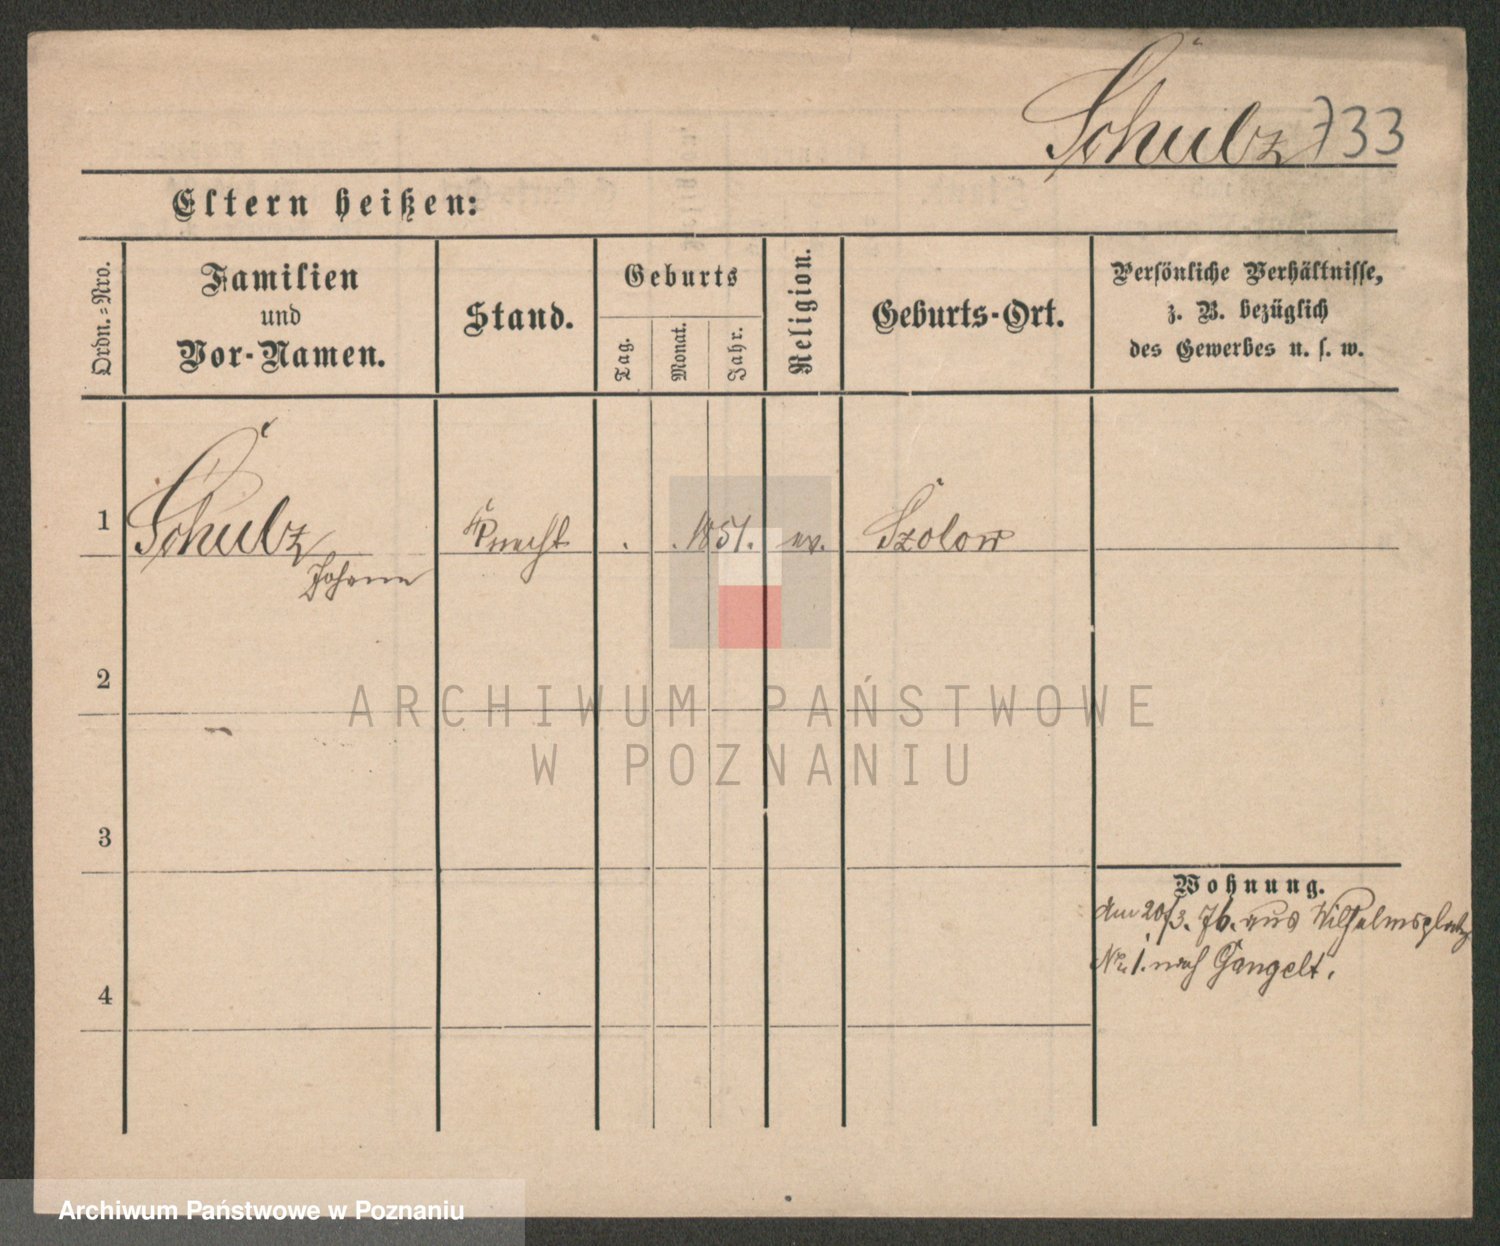 Schulz 733
Eltern heißen:
Ordn.-Nro.
Familien
und
Vor-Namen.
Stand.
Geburts
Tag.
Monat.
Jahr.
Religion.
Geburts-Ort.
Persönliche Verhältnisse,
z. B. bezüglich
des Gewerbes u. s. w.
1 Schulz Knecht . . 1851. ev. Szolow
Johann
2
ARCHIWUM PAŃSTWOWE
W POZNANIU
3
Wohnung.
den 20/3. 76. aus Wilhelmsplatz
No. 1. nach Gangelt.
4
Archiwum Państwowe w Poznaniu